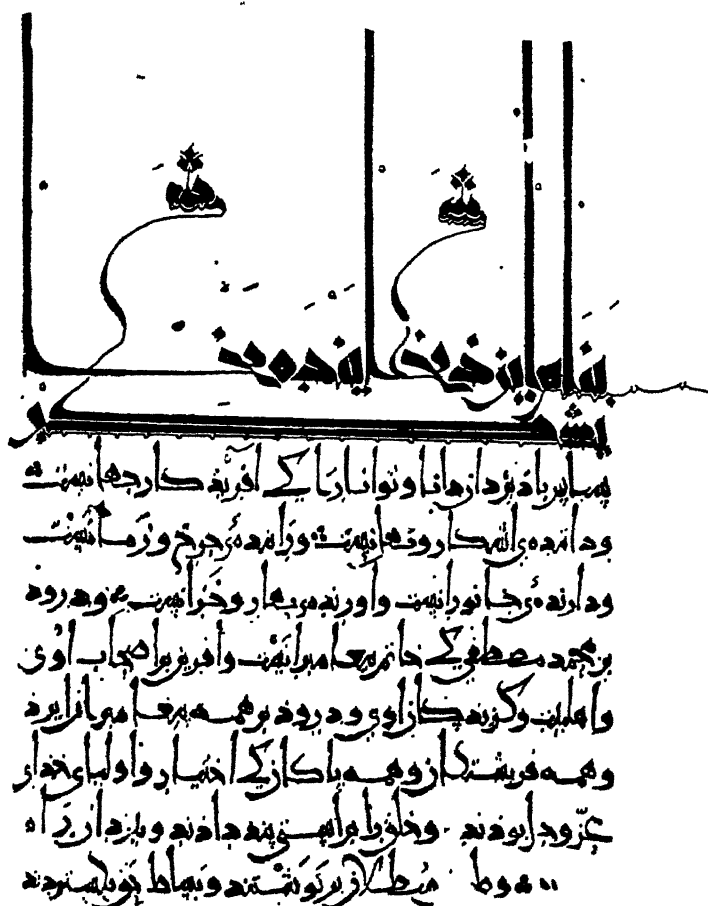 بنام ایزد
سپاس باد یزدان دانا و توانا را کی آفریدکار جهانست
و داننده‌ی آشکار و نهانست و راننده‌ی چرخ و زمانست
و دارنده‌ی جانورانست و آورنده‌ی بهار و خزانست و درود
بر محمد مصطفی کی خاتم پیغامبرانست و آفرین بر اصحاب اوی
و اهل بیت و گزیدکان اوی و درود بر همه پیغامبران ایزد
و همه فریشتکان و همه پاکان کی اختیار و اولیای خدای
عزّ و جل بودند و خلق را براستی پند دادند و بیزدان راه
و بساط